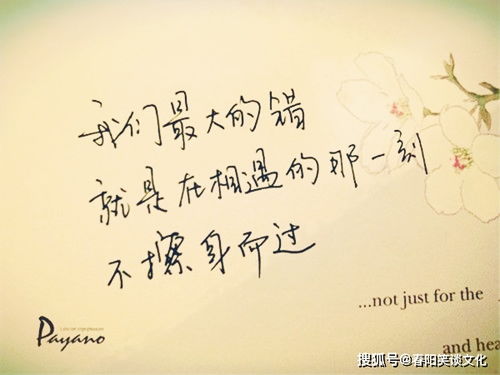 我们最大的错
就是在相遇的那一刻
不擦身而过
...not just for the
Payano
and hea
搜狐号@春阳笑谈文化